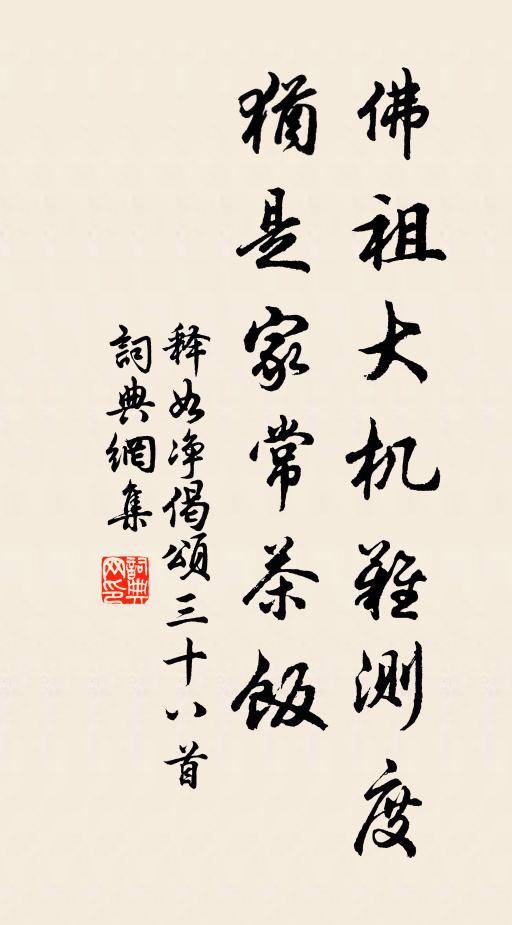 佛祖大机難测度
猶是家常茶飯
释如净偈頌三十八首
詞典網集
詞典网印